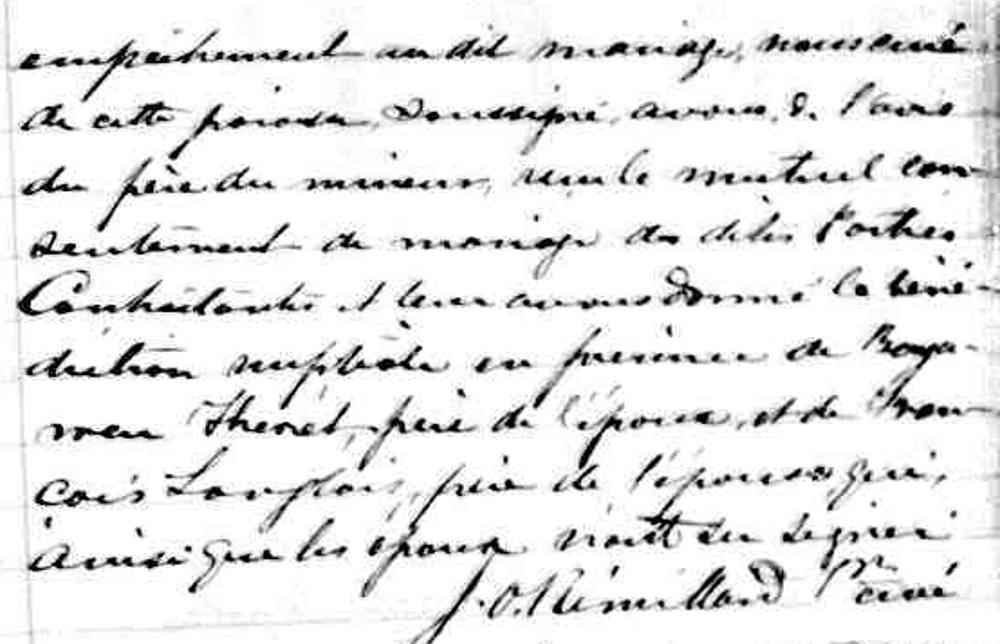 empêchement au dit mariage, nous curé
de cette paroisse, Soussigné, avons, de l'avis
du père du mineur, reçu le mutuel con-
sentement de mariage des dites Parties
Contractantes et leur avons donné la béné-
diction nuptiale en présence de Benja-
men Thenet, père de l'époux, et de Fran-
cois Langlois, père de l'épouse qui,
ainsi que les époux n'ont su signer
J. O. Rémillard Ptr curé